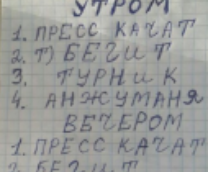 УТРОМ
1. ПРЕСС КАЧАТ
2. Т) БЕГИТ
3. ТУРНИК
4. АНЖУМАНЯ
ВЕЧЕРОМ
1. ПРЕСС КАЧАТ
2. БЕГИТ